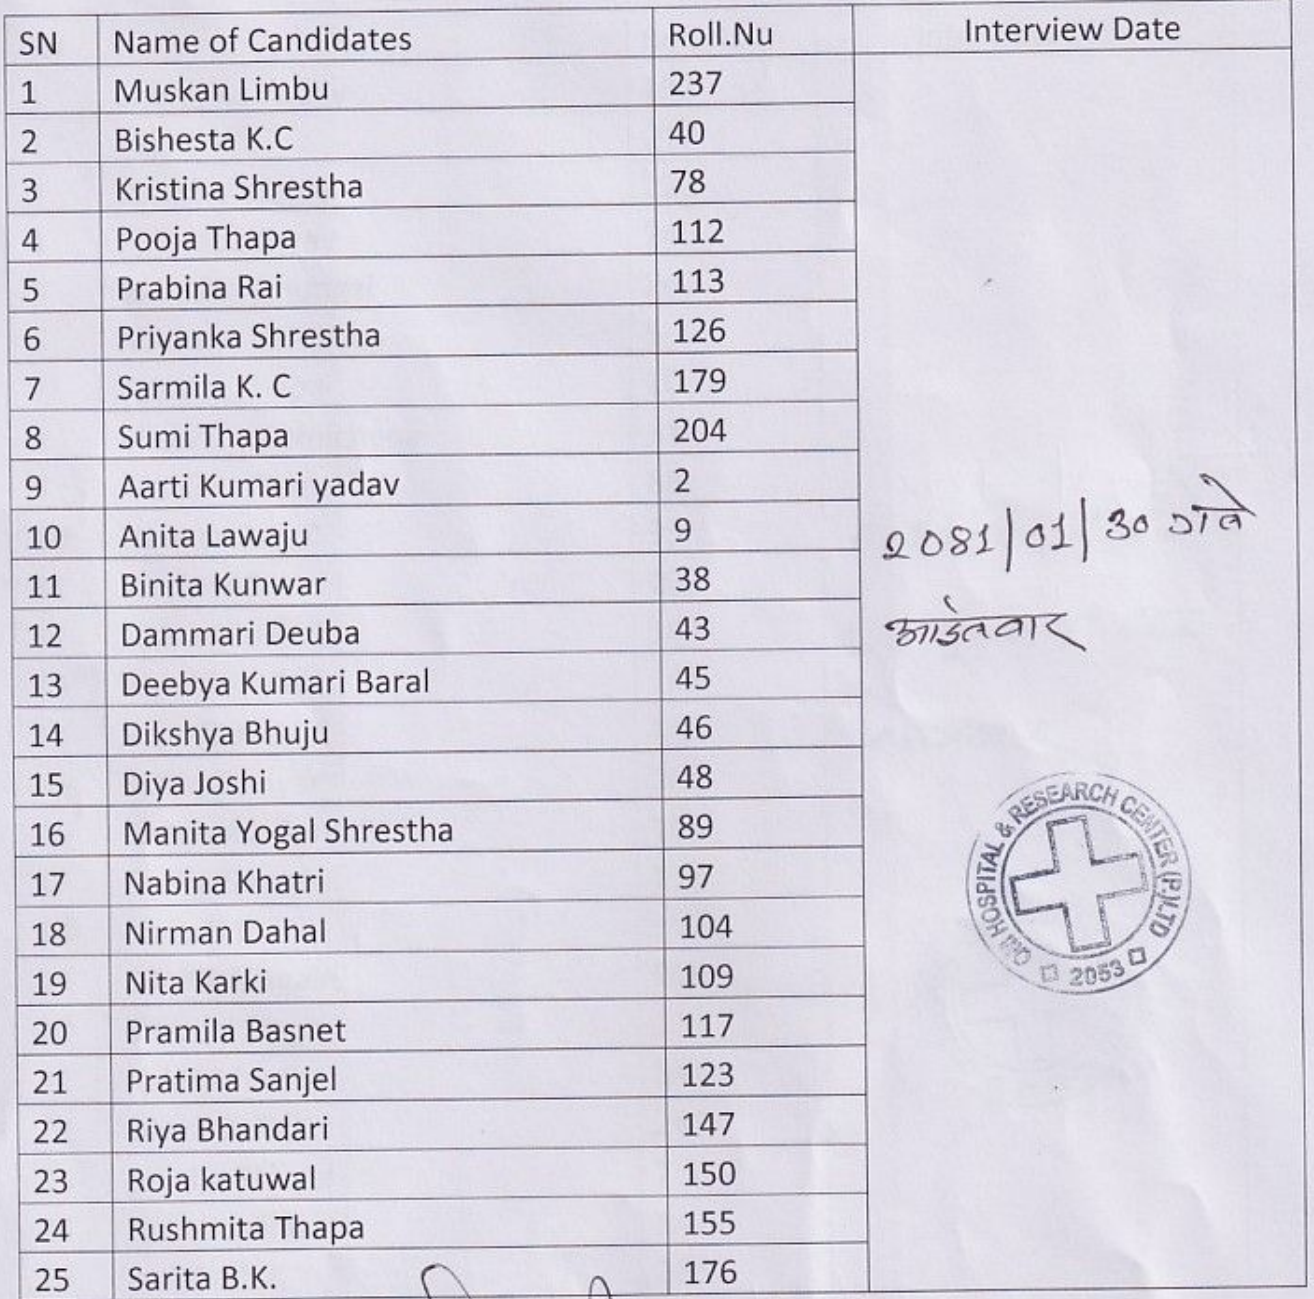 SN Name of Candidates Roll.Nu Interview Date
1 Muskan Limbu 237
2 Bishesta K.C 40
3 Kristina Shrestha 78
4 Pooja Thapa 112
5 Prabina Rai 113
6 Priyanka Shrestha 126
7 Sarmila K. C 179
8 Sumi Thapa 204
9 Aarti Kumari yadav 2
10 Anita Lawaju 9
11 Binita Kunwar 38
12 Dammari Deuba 43
13 Deebya Kumari Baral 45
14 Dikshya Bhuju 46
15 Diya Joshi 48
16 Manita Yogal Shrestha 89
17 Nabina Khatri 97
18 Nirman Dahal 104
19 Nita Karki 109
20 Pramila Basnet 117
21 Pratima Sanjel 123
22 Riya Bhandari 147
23 Roja katuwal 150
24 Rushmita Thapa 155
25 Sarita B.K. 176
2081/01/30 गते
आईतवार
HOSPITAL & RESEARCH CENTER (P.) LTD
2053